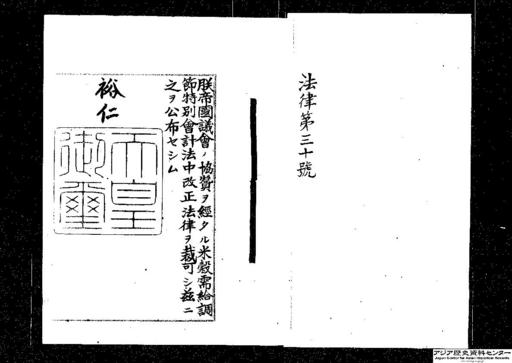 法律第三十號
朕帝國議會ノ協贊ヲ經タル米穀需給調
節特別會計法中改正法律ヲ裁可シ茲ニ
之ヲ公布セシム
裕仁
天皇
御璽
アジア歴史資料センター
Japan Center for Asian Historical Records